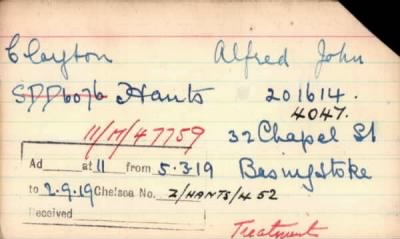 Clayton Alfred John
SDD6076 Hants 201614.
4047.
11/M/47759 32 Chapel St
Ad at 11 from 5.3.19 Basingstoke
to 2.9.19 Chelsea No. 2/HANTS/452
Received
Treatment